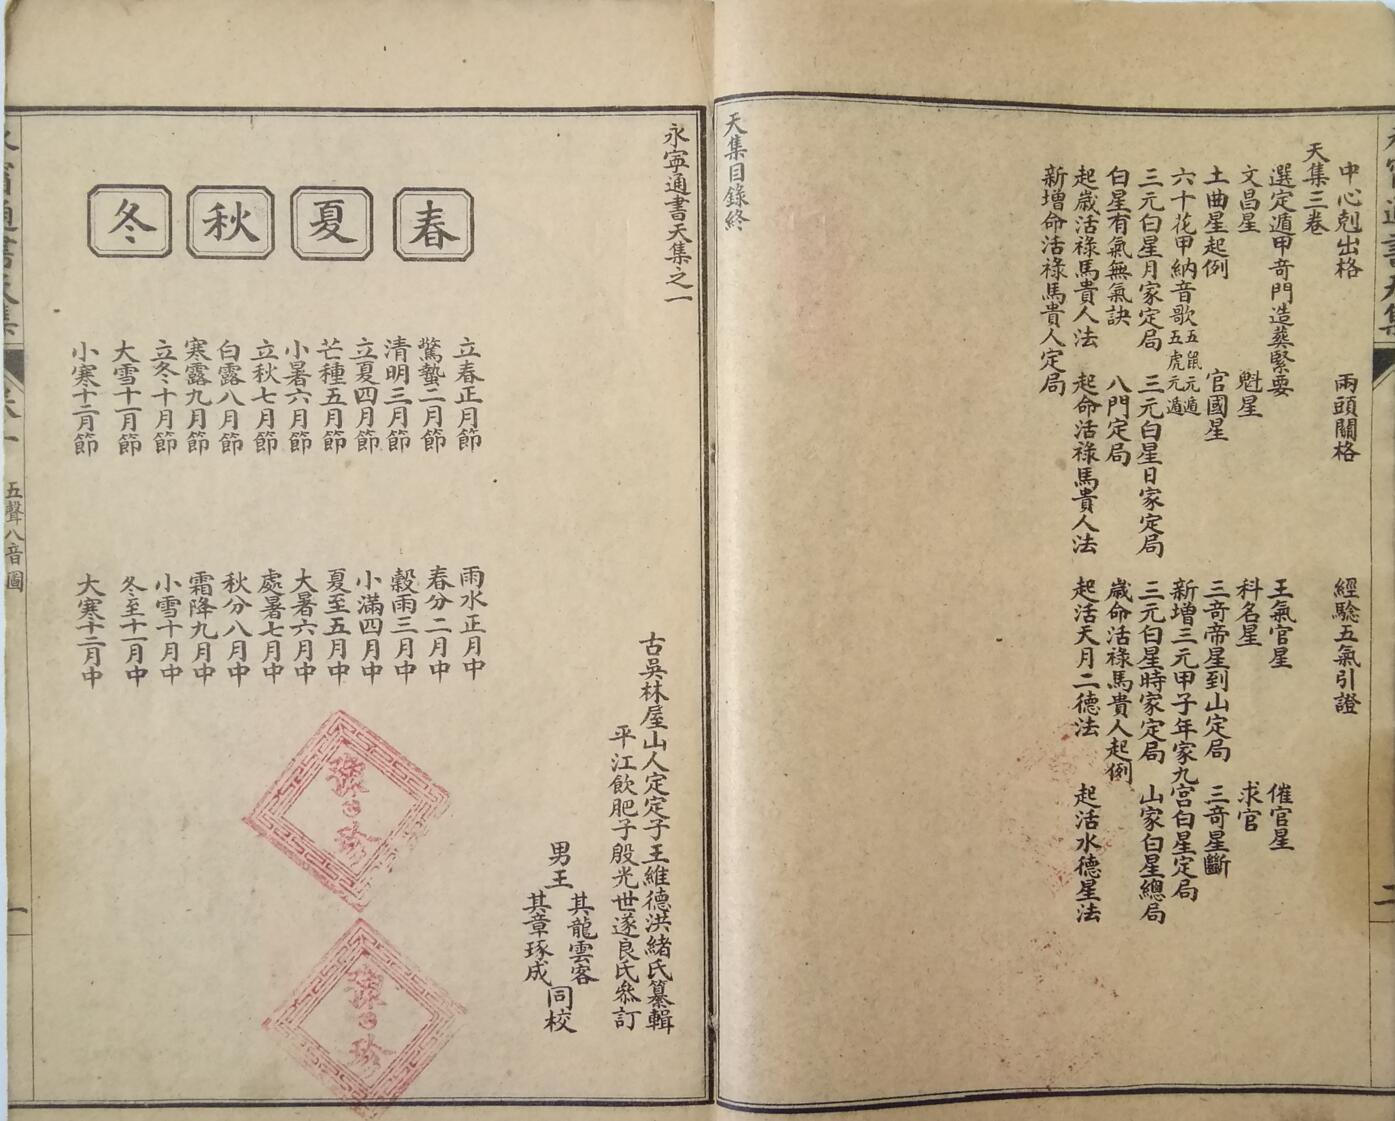 中心剋出格 兩頭關格 經騐五氣引證
天集三卷
選定遁甲奇門造葬緊要 王氣官星 催官星
文昌星 魁星 科名星 求官
土曲星起例 官國星 三奇帝星到山定局 三奇星斷
六十花甲納音歌 五鼠元遁 五虎元遁 新增三元甲子年家九宮白星定局
三元白星月家定局 三元白星日家定局 三元白星時家定局 山家白星總局
白星有氣無氣訣 八門定局 歲命活祿馬貴人起例
起歲活祿馬貴人法 起命活祿馬貴人法 起活天月二德法 起活水德星法
新增命活祿馬貴人定局
天集目錄終
二
永寧通書天集之一
古吳林屋山人定定子王維德洪緒氏纂輯
平江飲肥子殷光世遂良氏叅訂
男王 其龍雲客 其章琢成 同校
春
夏
秋
冬
立春正月節 雨水正月中
驚蟄二月節 春分二月中
清明三月節 穀雨三月中
立夏四月節 小滿四月中
芒種五月節 夏至五月中
小暑六月節 大暑六月中
立秋七月節 處暑七月中
白露八月節 秋分八月中
寒露九月節 霜降九月中
立冬十月節 小雪十月中
大雪十一月節 冬至十一月中
小寒十二月節 大寒十二月中
五聲八音圖
一